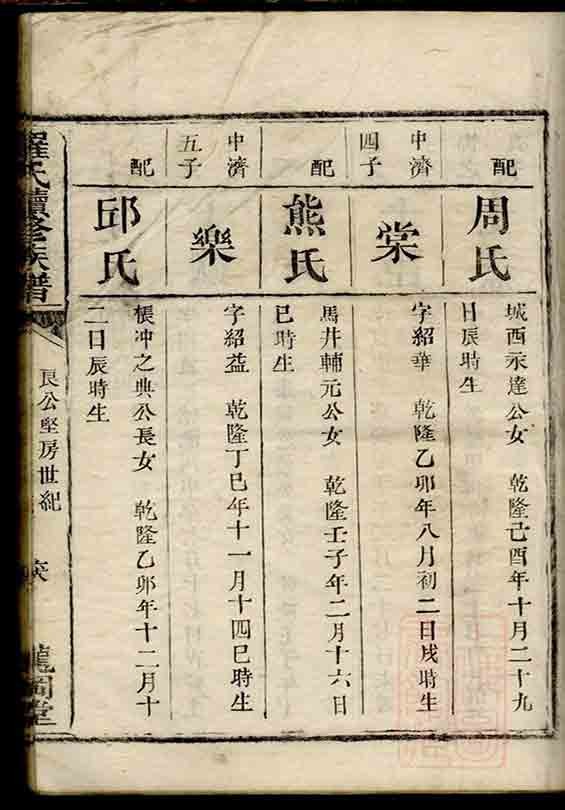 配
周氏
城西永達公女 乾隆己酉年十月二十九
日辰時生
中濟
四子
棠
字紹華 乾隆乙卯年八月初二日戌時生
配
熊氏
馬井輔元公女 乾隆壬子年二月十六日
巳時生
中濟
五子
樂
字紹益 乾隆丁巳年十一月十四巳時生
配
邱氏
楻冲之典公長女 乾隆乙卯年十二月十
二日辰時生
羅氏續修族譜
艮公堅房世紀